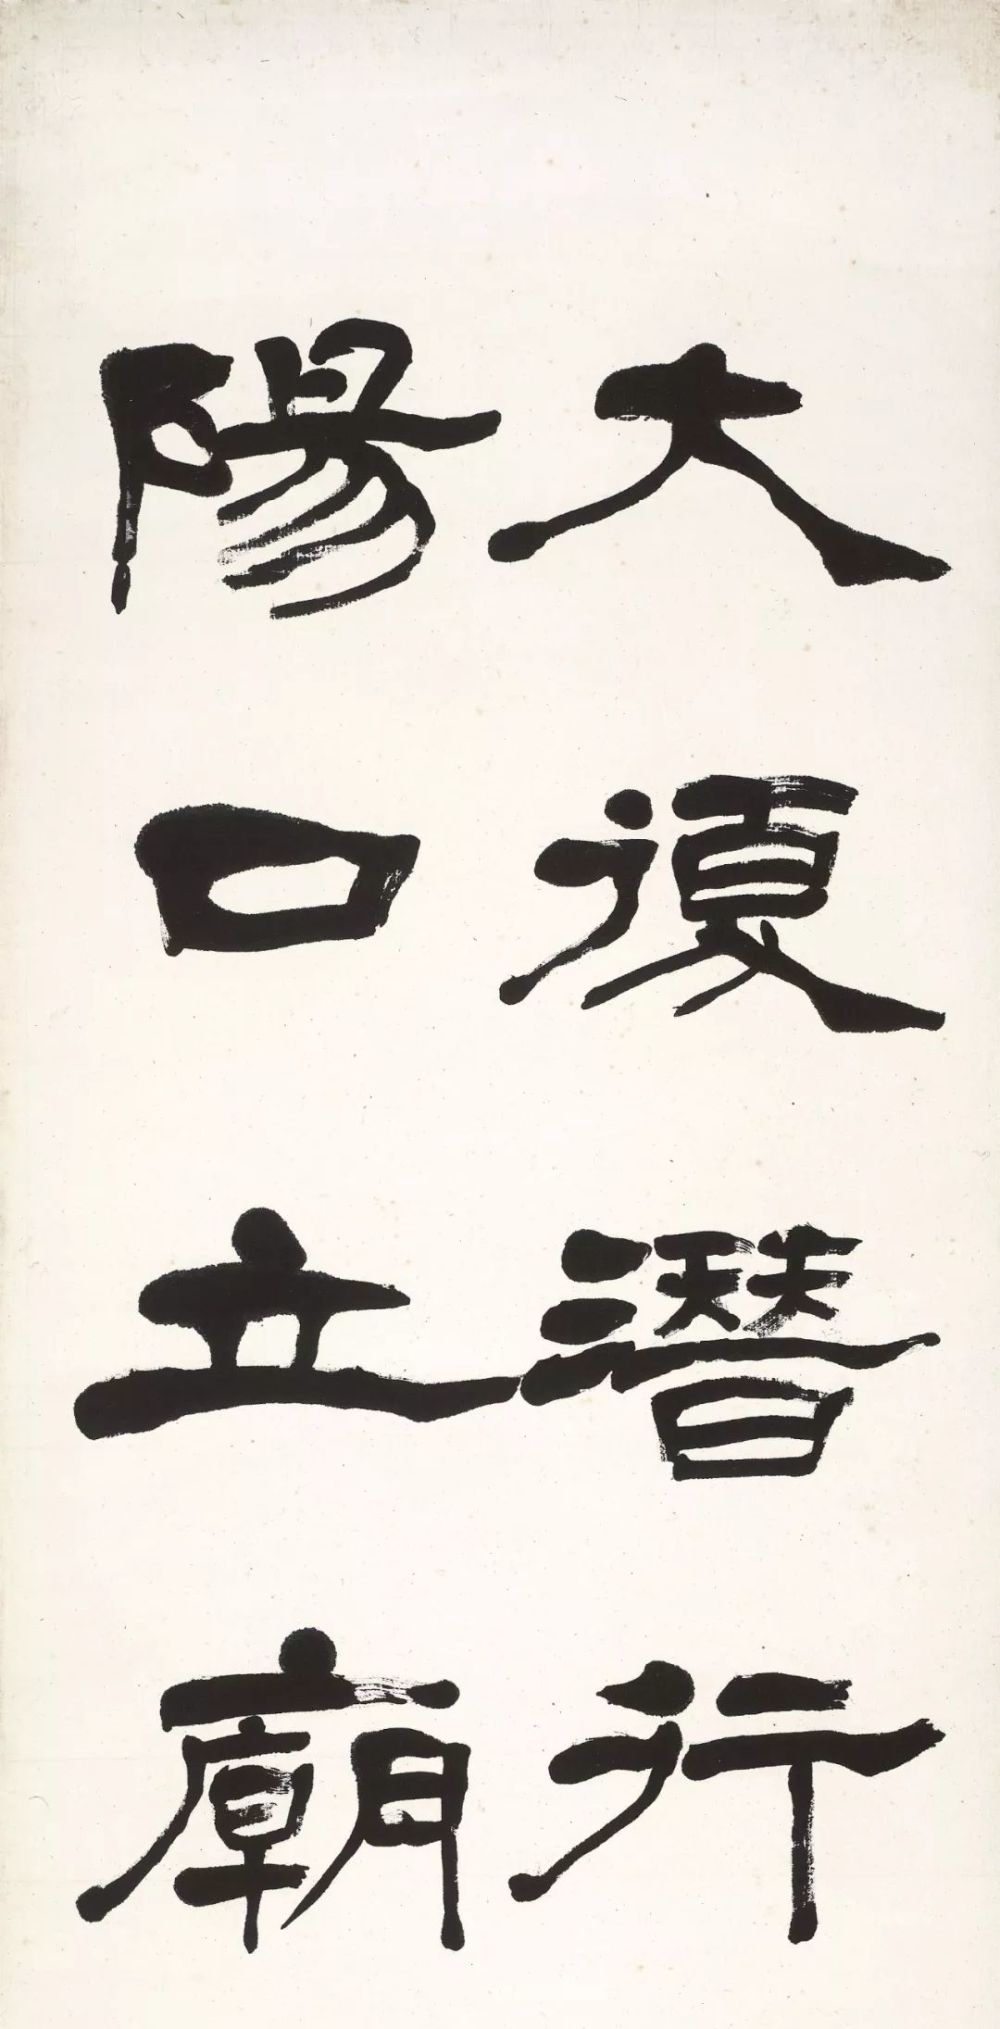 大復潛行
陽口立廟